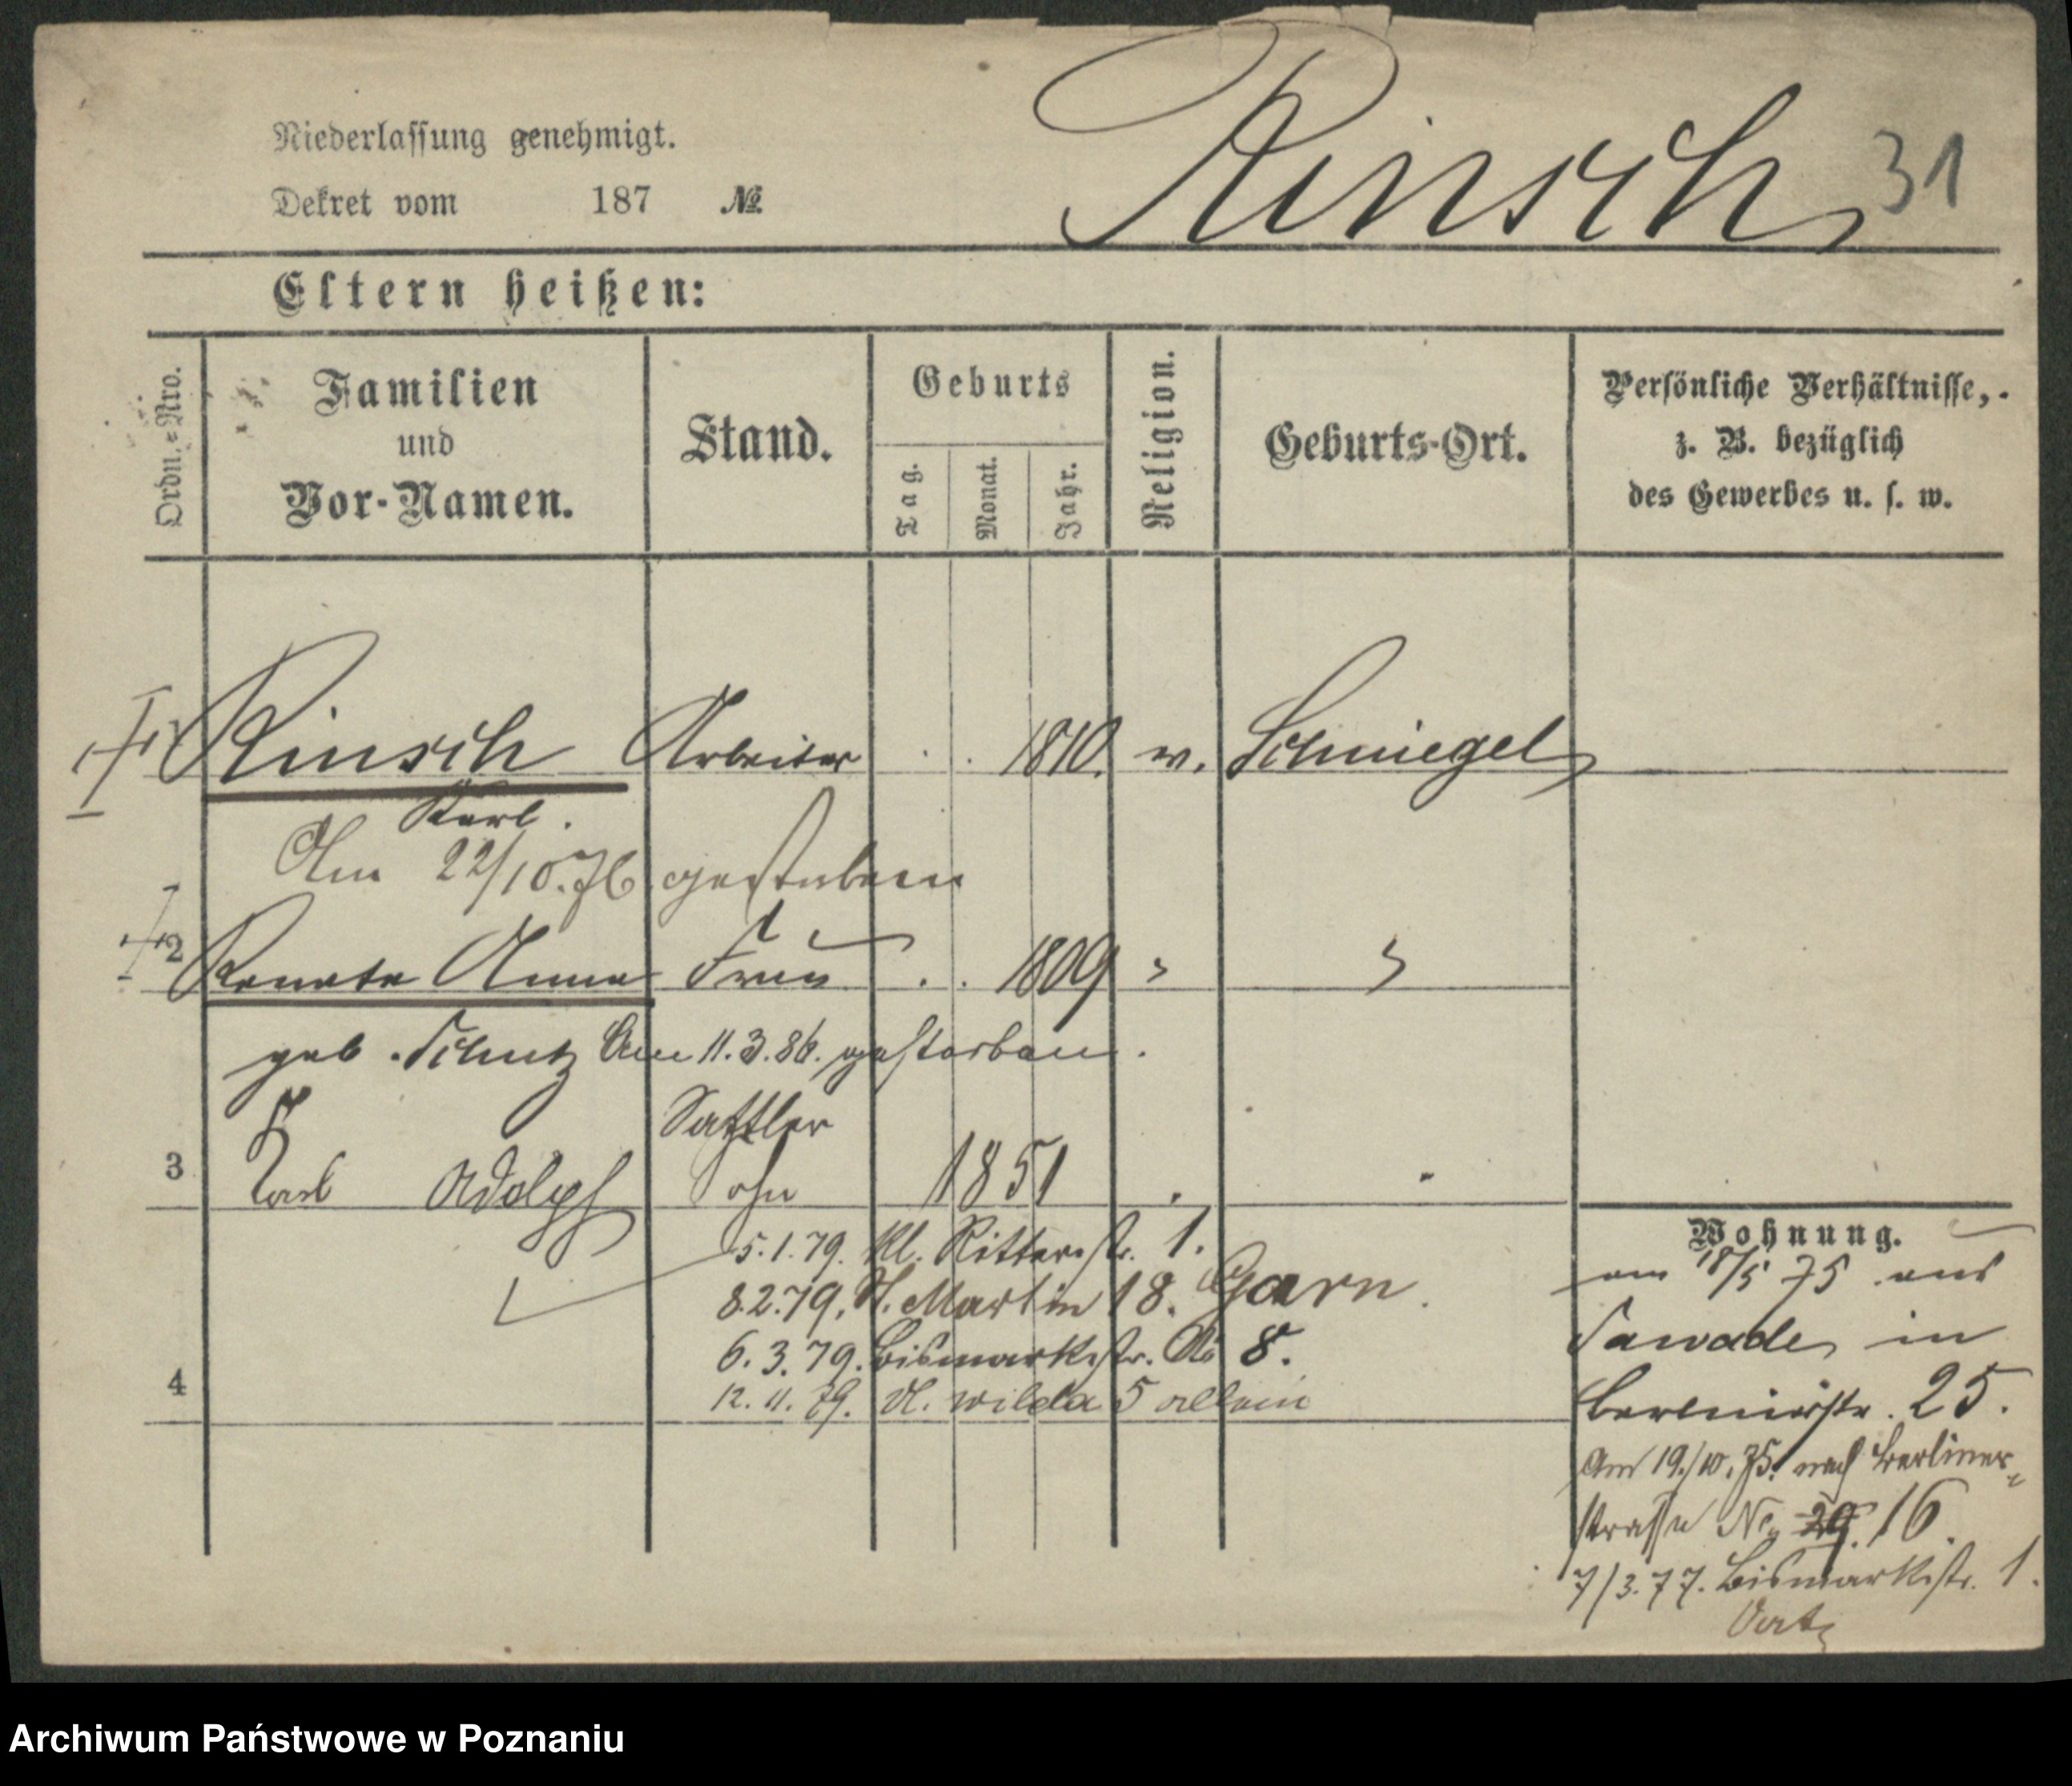 Niederlassung genehmigt.
Dekret vom 187 №
Rinsch 31
Eltern heißen:
Ordn.-Nro.
Familien
und
Vor-Namen.
Stand.
Geburts
Tag.
Monat.
Jahr.
Religion.
Geburts-Ort.
Persönliche Verhältnisse,
z. B. bezüglich
des Gewerbes u. s. w.
Rinsch Arbeiter 1810. Schmiegel
Karl.
Am 22/10.76 gestorben
2 Renate Anna Frau 1809
geb. Schutz Am 11.3.86. gestorben.
Sattler
3 Karl Adolph Sohn 1851
5.1.79. Kl. Ritterstr. 1.
8.2.79. St. Martin 18. Garn
6.3.79. Bismarkstr. No 8.
4 12.11.79. wilda 5 allein
Wohnung.
am 18/5 75 aus
Sawade in
Berlinerstr. 25.
Am 19./10.75. nach Berliner-
strasse No 29. 16.
7/3.77. Bismarkstr. 1.
Archiwum Państwowe w Poznaniu